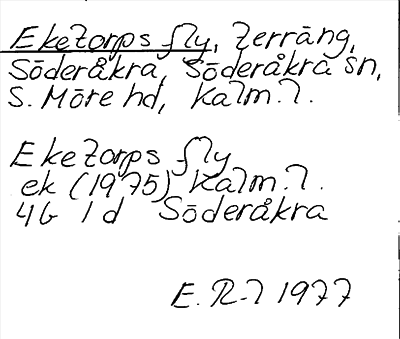 Eketorps fly, terräng,
Söderåkra, Söderåkra sn,
S. Möre hd, Kalm. l.
Eketorps fly
ek (1975) Kalm. l.
4G 1d Söderåkra
E. R-l 1977